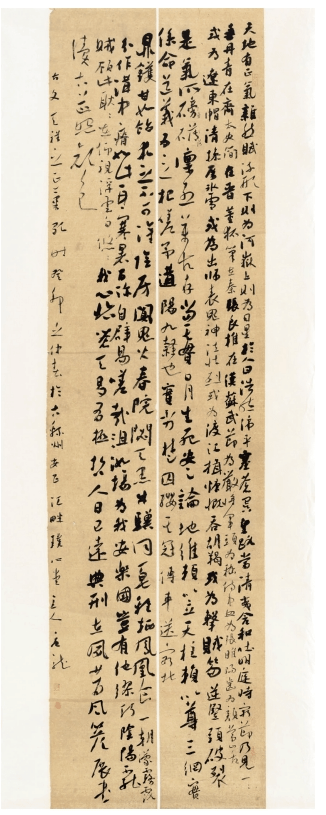 天地有正氣雜然賦流形下則為河嶽上則為日星於人曰浩然沛乎塞蒼冥皇路當清夷含和吐明庭時窮節乃見一一
垂丹青在齊太史簡在晉董狐筆在秦張良椎在漢蘇武節為嚴將軍頭為嵇侍中血為張睢陽齒為顏常山舌
或為遼東帽清操厲冰雪或為出師表鬼神泣壯烈或為渡江楫慷慨吞胡羯或為擊賊笏逆豎頭破裂
是氣所磅礴凜烈萬古存當其貫日月生死安足論地維賴以立天柱賴以尊三綱實
係命道義為之根嗟予遘陽九隸也實不力楚囚纓其冠傳車送窮北
鼎鑊甘如飴求之不可得陰房闃鬼火春院閟天黑牛驥同一皂雞棲鳳凰食一朝蒙霧露
分作溝中瘠如此再寒暑百沴自辟易嗟哉沮洳場為我安樂國豈有他繆巧陰陽不能
賊顧此耿耿在仰視浮雲白悠悠我心悲蒼天曷有極哲人日已遠典刑在夙昔風簷展書
讀古道照顏色
右文天祥之正氣歌時癸卯之仲春於古州璞心堂主人